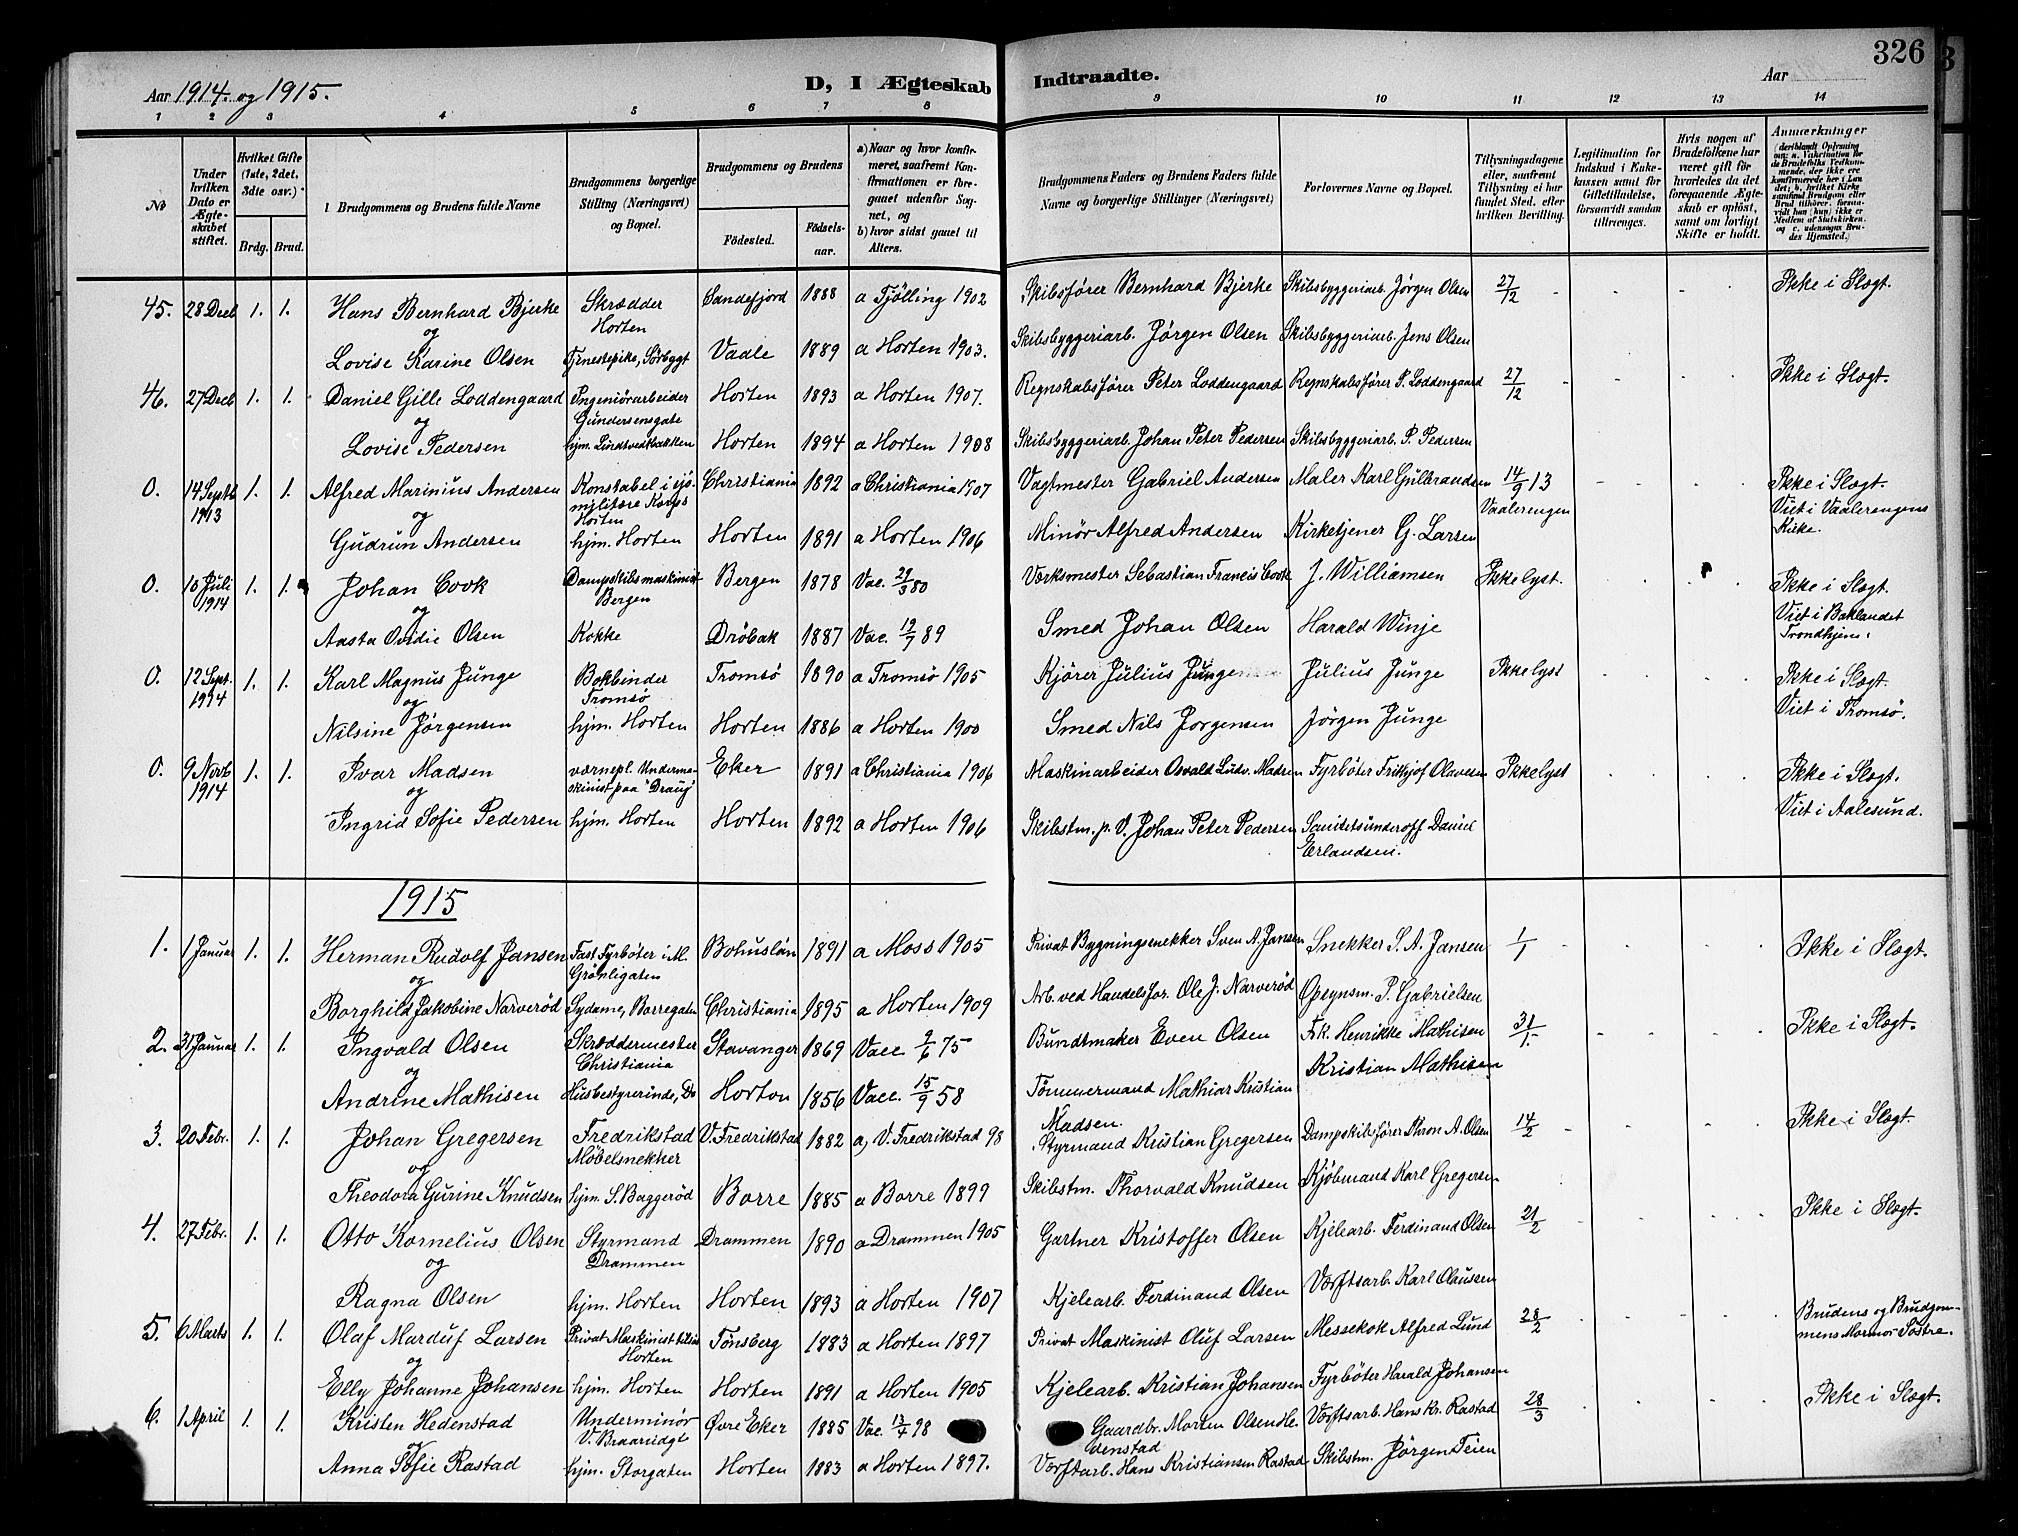 326
Aar 1914. og 1915.
D, I Ægteskab Indtraadte.
Aar
1 2 3 4 5 6 7 8 9 10 11 12 13 14
No
Under hvilken Dato er Ægteskabet stiftet.
Hvilket Gifte (1ste, 2det, 3die osv.)
Brdg. Brud.
Brudgommens og Brudens fulde Navne
Brudgommens borgerlige Stilling (Næringsvei) og Bopæl.
Brudgommens og Brudens
Fødested. Fødselsaar.
a) Naar og hvor konfirmeret, saafremt Konfirmationen er foregaaet udenfor Sognet, og
b) hvor sidst gaaet til Alters.
Brudgommens Faders og Brudens Faders fulde Navne og borgerlige Stillinger (Næringsvei)
Forlovernes Navne og Bopæl.
Tillysningsdagene eller, saafremt Tillysning ei har fundet Sted, efter hvilken Bevilling.
Legitimation for Indskud i Enkekassen samt for Giftetilladelse, forsaavidt saadan tiltrænges.
Hvis nogen af Brudefolkene har været gift før hvorledes da det foregaaende Ægteskab er opløst, samt om lovligt Skifte er holdt.
Anmærkninger
45. 28 Decb 1. 1. Hans Bernhard Bjerke Skrædder Horten Sandefjord 1888 a Tjölling 1902 Skibsfører Bernhard Bjerke Skibsbyggeriarb. Jörgen Olsen 27/12 Ikke i Slægt.
og
Lovise Karine Olsen Tjenestepike, Sørbygt Vadle 1889 a Horten 1903. Skibsbyggeriarb. Jørgen Olsen Skibsbyggeriarb. Jens Olsen
46. 27 Decb 1. 1. Daniel Gille Loddengaard Ingeniørarbeider Gundersensgate Horten 1893 a Horten 1907. Regnskabsfører Peter Loddengaard Regnskabsfører P. Loddengaard 27/12 Ikke i Slægt.
og
Lovise Pedersen hjm. Lindtvedbakken Horten 1894 a Horten 1908 Skibsbyggeriarb. Johan Peter Pedersen Skibsbyggeriarb. P. Pedersen
0. 14 Septb 1913 1. 1. Alfred Marinius Andersen Konstabel i sjömilitære Korps Horten Christiania 1892 a Christiania 1907 Vagtmester Gabriel Andersen Maler Karl Gulbrandsen 14/9 13 Vaalerengen Ikke i Slægt. Viet i Vaalerengens Kirke.
og
Gudrun Andersen hjm. Horten Horten 1891 a Horten 1906 Minör Alfred Andersen Kirketjener G. Larsen
0. 10 Juli 1914 1. 1. Johan Cook Dampskibsmaskinist Bergen Bergen 1878 Vac. 29/3 80 Værksmester Sebastian Francis Cook J. Williamsen Ikke lyst. Ikke i Slægt. Viet i Baklandet Trondhjem.
og
Aasta Ovidie Olsen Kokke Dröbak 1887 Vac. 19/7 89 Smed Johan Olsen Harald Winje
0. 12 Sept. 1914 1. 1. Karl Magnus Junge Bokbinder Tromsö Tromsö 1890 a Tromsö 1905 Kjörer Julius Junge Julius Junge Ikke lyst Ikke i Slægt. Viet i Tromsö.
og
Nilsine Jørgensen hjm. Horten Horten 1886 a Horten 1900 Smed Nils Jorgensen Jörgen Junge
0. 9 Novb 1914 1. 1. Ivar Madsen værnepl. Undermaskinist paa "Draug" Eker 1891 a Christiania 1906 Maskinarbeider Osvald Ludv. Madsen Fyrböter Frithjof Olavesen Ikke lyst Ikke i Slægt. Viet i Aalesund.
og
Ingrid Sofie Pedersen hjm. Horten Horten 1892 a Horten 1906 Skibstm. p. V. Johan Peter Pedersen Sanitetsunderoff Daniel Erlandsen.
1915
1. 1 Januar 1. 1. Herman Rudolf Jansen Fast Fyrböter i M. Grönligaten Bohuslän 1891 a Moss 1905 Privat Bygningssnekker Sven A. Jansen Snekker S. A. Jansen 1/1 Ikke i Slægt.
og
Borghild Jakobine Narveröd Sydame, Borregaten Christiania 1895 a Horten 1909 Arb. ved Handelsfor. Ole J. Narveröd Opsynsm. P. Gabrielsen
2. 31 Januar 1. 1. Ingvald Olsen Skræddermester Christiania Stavanger 1869 Vacc 9/6 75 Bundtmaker Even Olsen Frk. Henrikke Mathisen 31/1. Ikke i Slægt.
og
Andrine Mathisen Husbestyrerinde, Do Horten 1856 Vacc. 15/9 58 Tömmermand Mathias Kristian Madsen. Kristian Mathisen
3. 20 Febr. 1. 1. Johan Gregersen Fredrikstad Møbelsnekker V. Fredrikstad 1882 a, V. Fredrikstad 98 Styrmand Kristian Gregersen Dampskibsfører Thron A. Olsen 14/2 Ikke i Slægt.
og
Theodora Gurine Knudsen hjm. S. Baggeröd Borre 1885 a Borre 1899 Skibstm. Thorvald Knudsen Kjöbmand Karl Gregersen
4. 27 Febr. 1. 1. Otto Kornelius Olsen Styrmand Drammen Drammen 1890 a Drammen 1905 Gartner Kristoffer Olsen Kjelearb. Ferdinand Olsen 21/2 Ikke i Slægt.
og
Ragna Olsen hjm. Horten Horten 1893 a Horten 1907 Kjelearb. Ferdinand Olsen Værftsarb. Karl Olaussen
5. 6 Marts 1. 1. Olaf Marduf Larsen Privat Maskinist Horten Tønsberg 1883 a Horten 1897 Privat Maskinist Oluf Larsen Messekok Alfred Lund 28/2 Brudens og Brudgommens Mormor Söstre.
og
Elly Johanne Johansen hjm. Horten Horten 1891 a Horten 1905 Kjelearb. Kristian Johansen Fyrböter Harald Johansen
6. 1 April 1. 1. Kristen Hedenstad Underminör V. Braarudgt Øvre Eker 1885 Vac. 13/4 98 Gaardbr. Morten Olsen Hedenstad Værftsarb. Hans Kr. Rastad 28/3 Ikke i Slægt.
og
Anna Sofie Rastad hjm. Storgaten Horten 1883 a Horten 1897. Værftarb. Hans Kristiansen Rastad Skibstm. Jörgen Teien